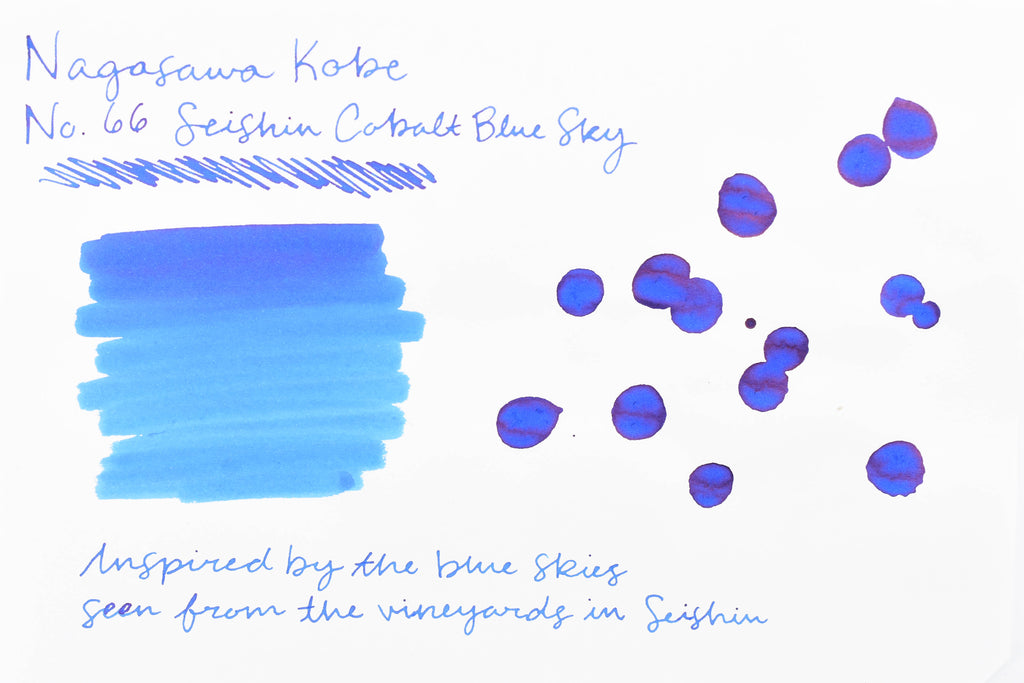 Nagasawa Kobe
No. 66 Seishin Cobalt Blue Sky
Inspired by the blue skies
seen from the vineyards in Seishin